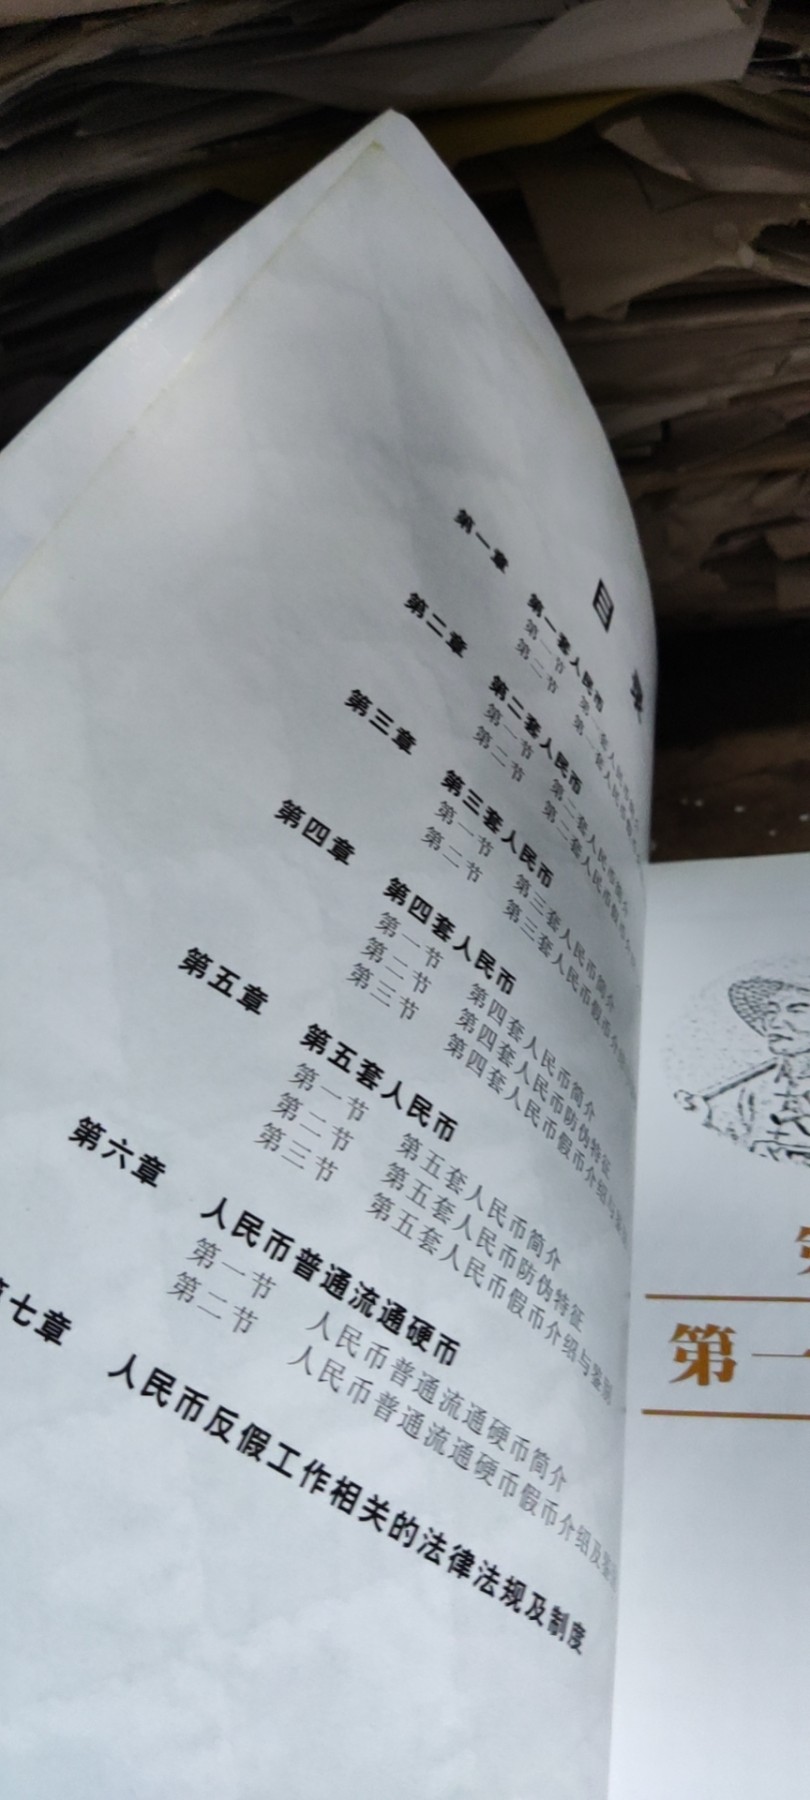 目 录
第一章 第一套人民币
第一节 第一套人民币简介
第二节 第一套人民币假币
第二章 第二套人民币
第一节 第二套人民币简介
第二节 第二套人民币假币介
第三章 第三套人民币
第一节 第三套人民币简介
第二节 第三套人民币假币介绍
第四章 第四套人民币
第一节 第四套人民币简介
第二节 第四套人民币防伪特征
第三节 第四套人民币假币介绍与鉴别
第五章 第五套人民币
第一节 第五套人民币简介
第二节 第五套人民币防伪特征
第三节 第五套人民币假币介绍与鉴别
第六章 人民币普通流通硬币
第一节 人民币普通流通硬币简介
第二节 人民币普通流通硬币假币介绍及鉴别
第七章 人民币反假工作相关的法律法规及制度
第一